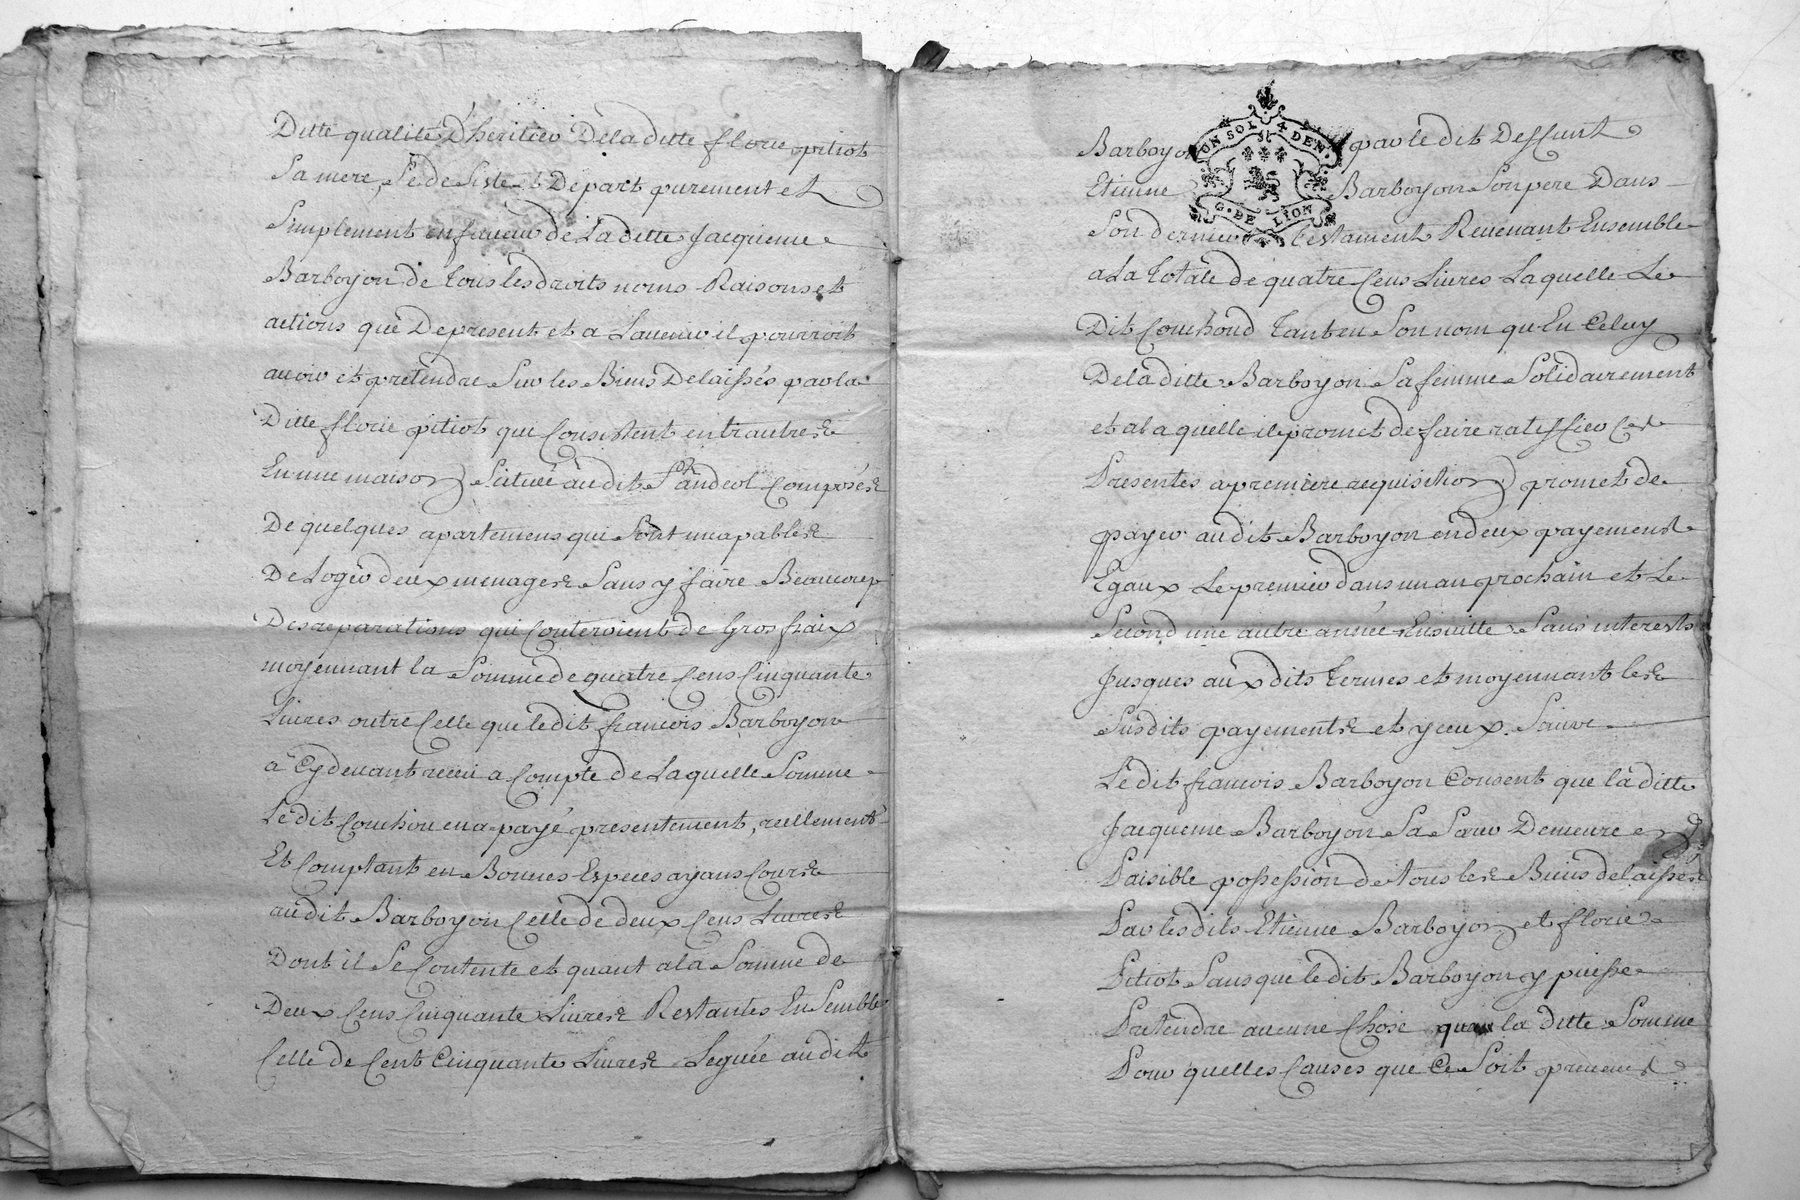 Ditte qualité D'heritier Dela ditte florie pitiot
Sa mere, Se de Siste et Depart purement et
Simplement en faveur de La ditte Jacqueme
Barboyon de Tous les droits noms Raisons et
actions que De present et a L'avenir il pourroit
avoir et pretendre Sur les Biens Delaissés par la
Ditte florie pitiot qui Consistent entr'autres
En une maison Scituée au dit St andeol Composée
De quelques apartemens qui Sont incapables
De Loger deux menages Sans y faire Beaucoup
Des reparations qui Couteroient de Gros fraix
moyennant la Somme de quatre Cens Cinquante
Livres outre Celle que le dit francois Barboyon
a Cy devant receu a Compte de Laquelle Somme
Le dit Couchou en a payé presentement, reellement
Et Comptant en Bonnes Especes ayans Cours
au dit Barboyon Celle de deux Cens Livres
Dont il Se Contente et quant a la Somme de
Deux Cens Cinquante Livres Restantes En Semble
Celle de Cent Cinquante Livres Leguée au dit
UN SOL 4 DEN.
G. DE LION
Barboyon par le dit Deffunt
Etienne Barboyon Son pere Dans
Son dernier testament Revenant Ensemble
a La Totale de quatre Cens Livres Laquelle Le
Dit Couchoud Tant en Son nom qu'En Celuy
De la ditte Barboyon Sa femme Solidairement
et a la quelle il promet de faire ratiffier Ces
Presentes a premiere requisition promet de
payer au dit Barboyon en deux payements
Egaux Le premier dans un an prochain et Le
Second une autre année Ensuitte Sans interests
Jusques aux dits Termes et moyennant les
Susdits payements et yceux Saine
Le dit francois Barboyon Consent que la ditte
Jacqueme Barboyon Sa Sœur Demeure en
Paisible possession de Tous les Biens delaissés
Par les dits Etienne Barboyon et florie
Pitiot Sans que le dit Barboyon y puisse
Pretendre aucune Chose que la ditte Somme
Pour quelles Causes que Ce Soit